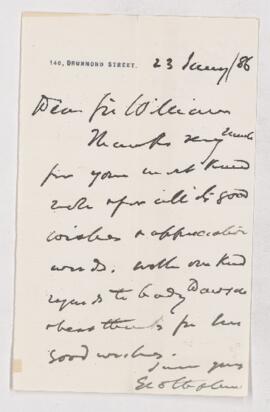 140, DRUMMOND STREET.
23 Jany/86
Dear Sir William
Thanks very much
for your most kind
note & for all its good
wishes & appreciative
words. with our kind
regards to Lady Dawson
& best thanks for her
good wishes.
Geo Stephen